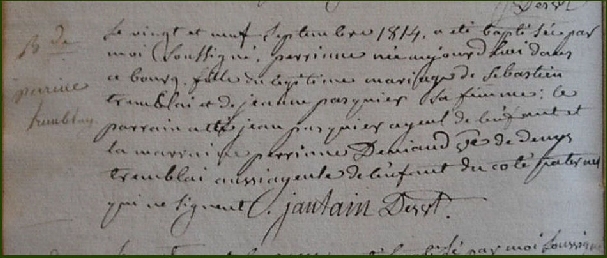 Desst
B. de
perrine
tremblay
Le vingt et neuf septembre 1814, a été baptisée par
moi soussigné, perrinne née aujourd'hui dans
ce bourg, fille du légitime mariage de Sébastien
tremblai et de jeanne pasquier sa femme; le
parrain a été jean pasquier ayeul de l'enfant et
la marraine perrinne Deniaud ve de denys
tremblai aussi ayeule de l'enfant du coté paternel
qui ne signent. jantain Desst.
par moi soussigné